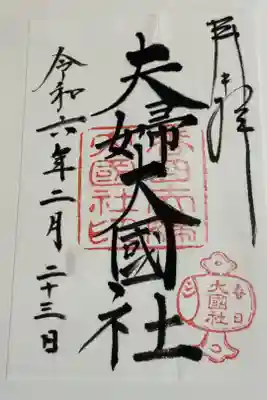 月拝
夫婦大國社
令和六年二月二十三日
春日
大國社